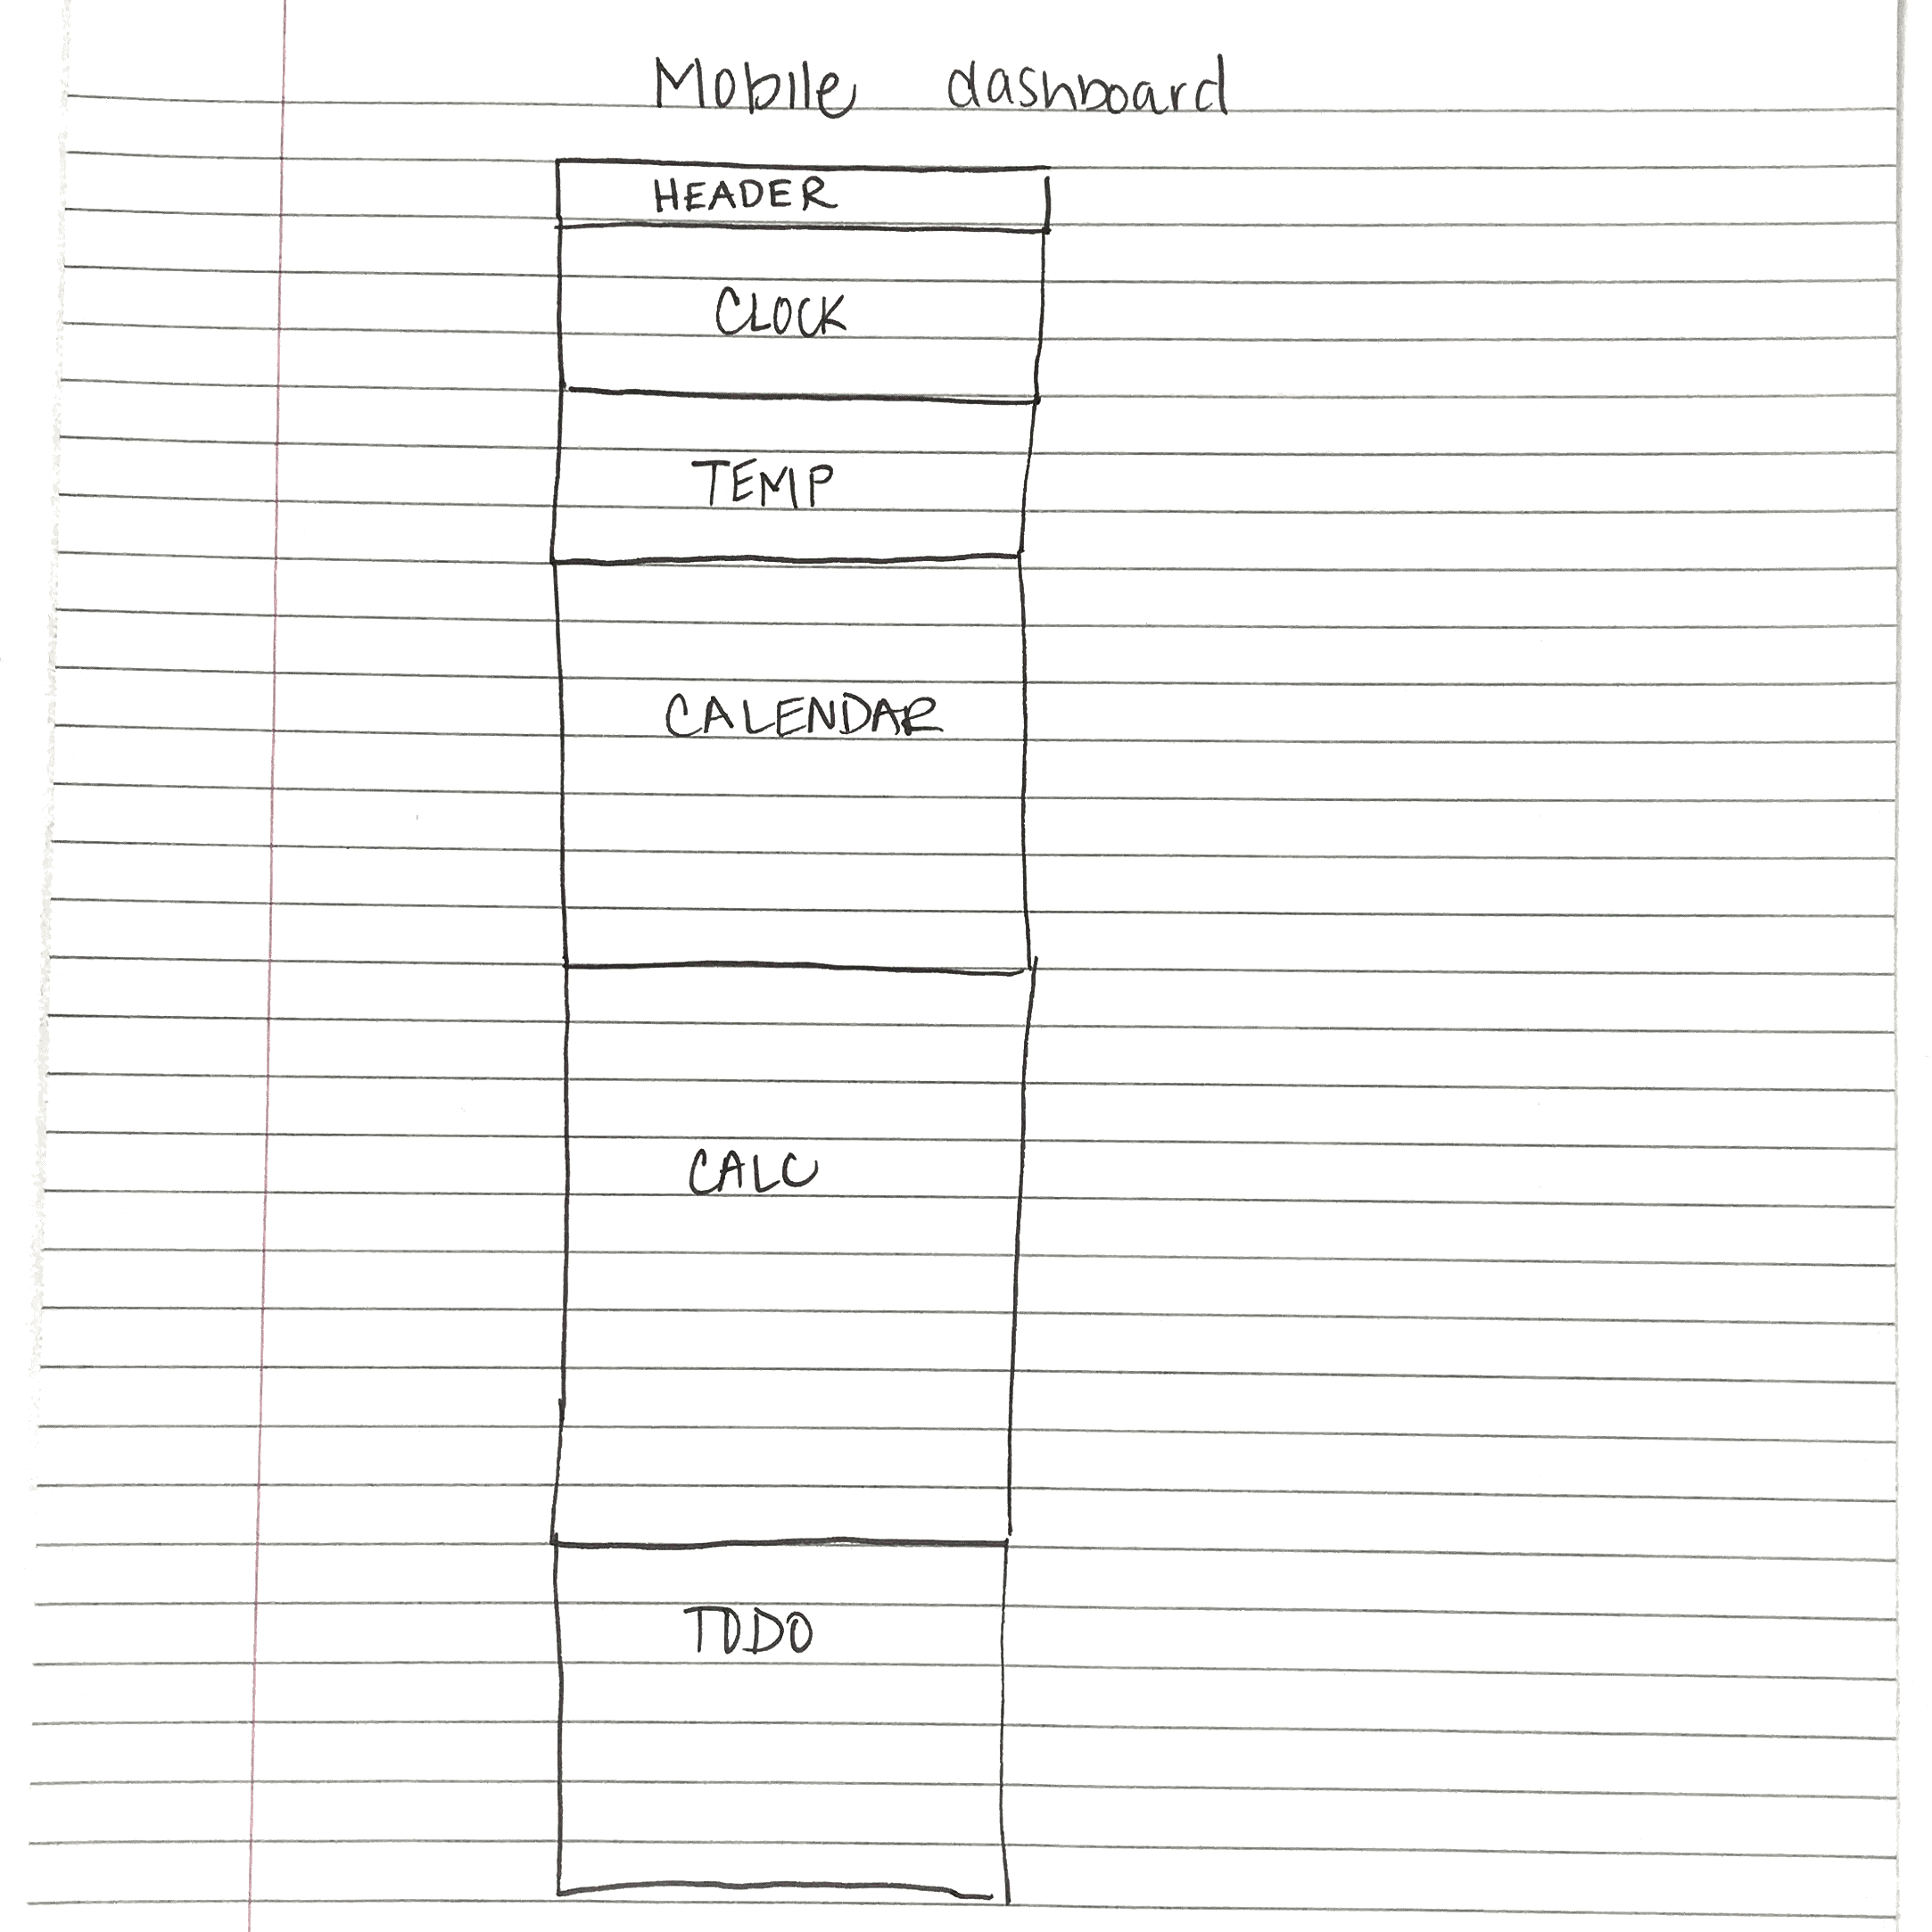 Mobile dashboard
HEADER
CLOCK
TEMP
CALENDAR
CALC
TODO